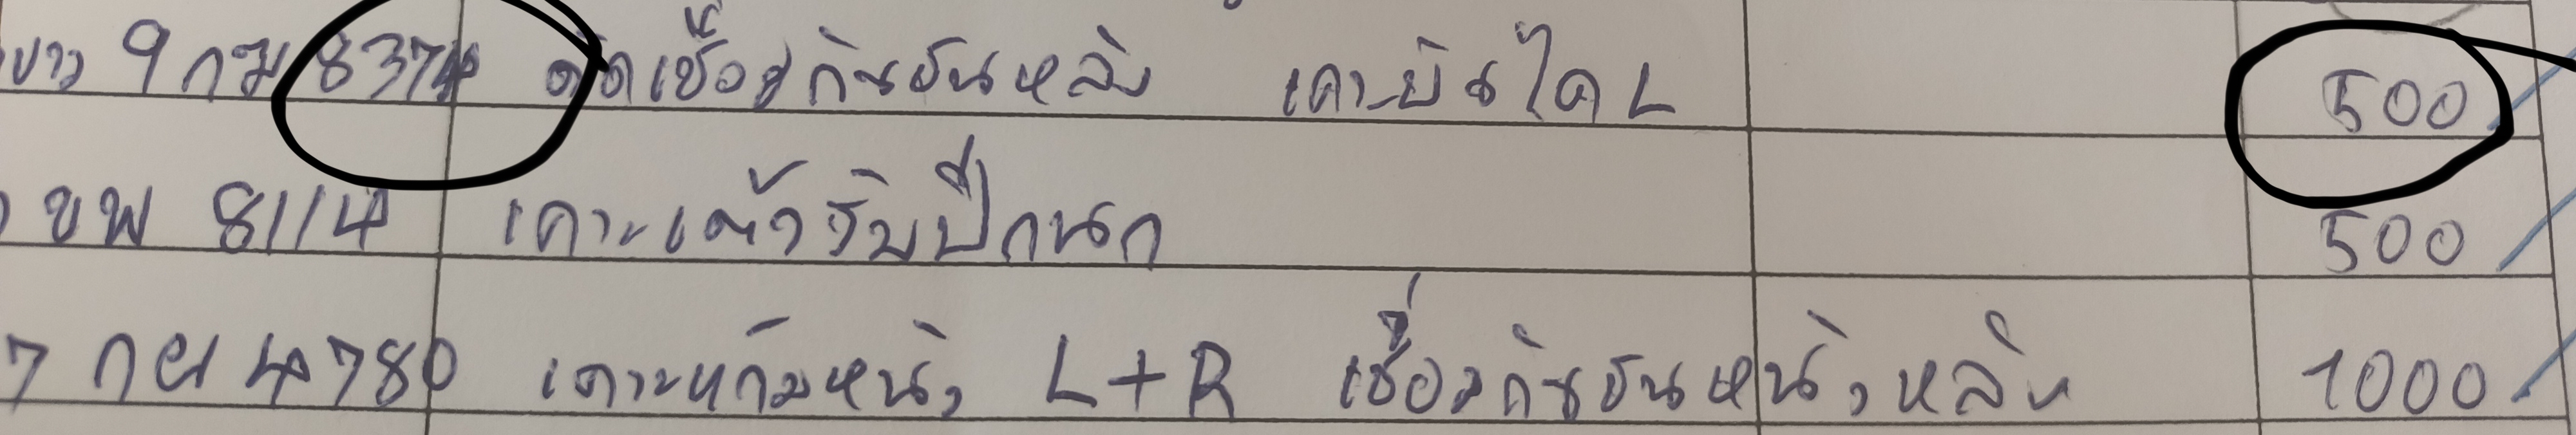 ขาว 9กม 8374 ตัดเชื่อมกันชนหลัง เคาะบันได L 500
ขพ 8114 เคาะเต้ารับปีกนก 500
7 กย 4780 เคาะแก้มหน้า L+R เชื่อมกันชนหน้า, หลัง 1000